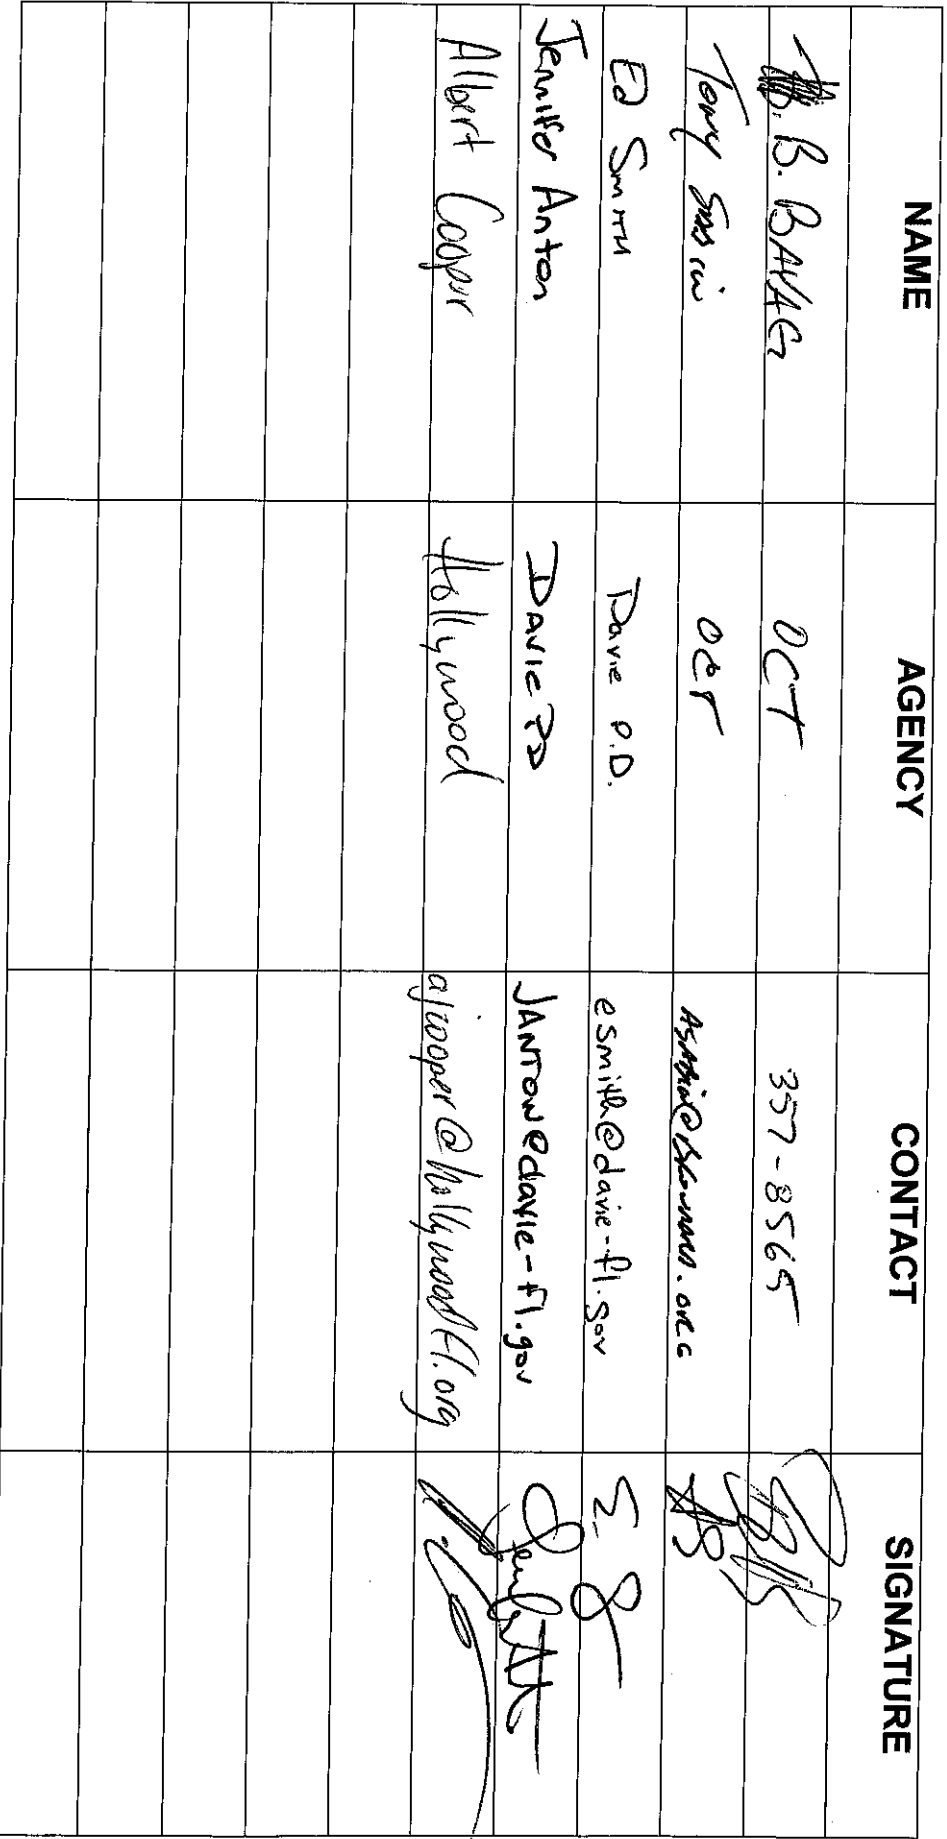 NAME AGENCY CONTACT SIGNATURE
B. OCT 357-8565
Tony OCT
Ed Smith Davie P.D. esmith@davie-fl.gov
Jennifer Anton Davie PD JANTON@davie-fl.gov
Albert Cooper Hollywood ajcooper@hollywoodfl.org